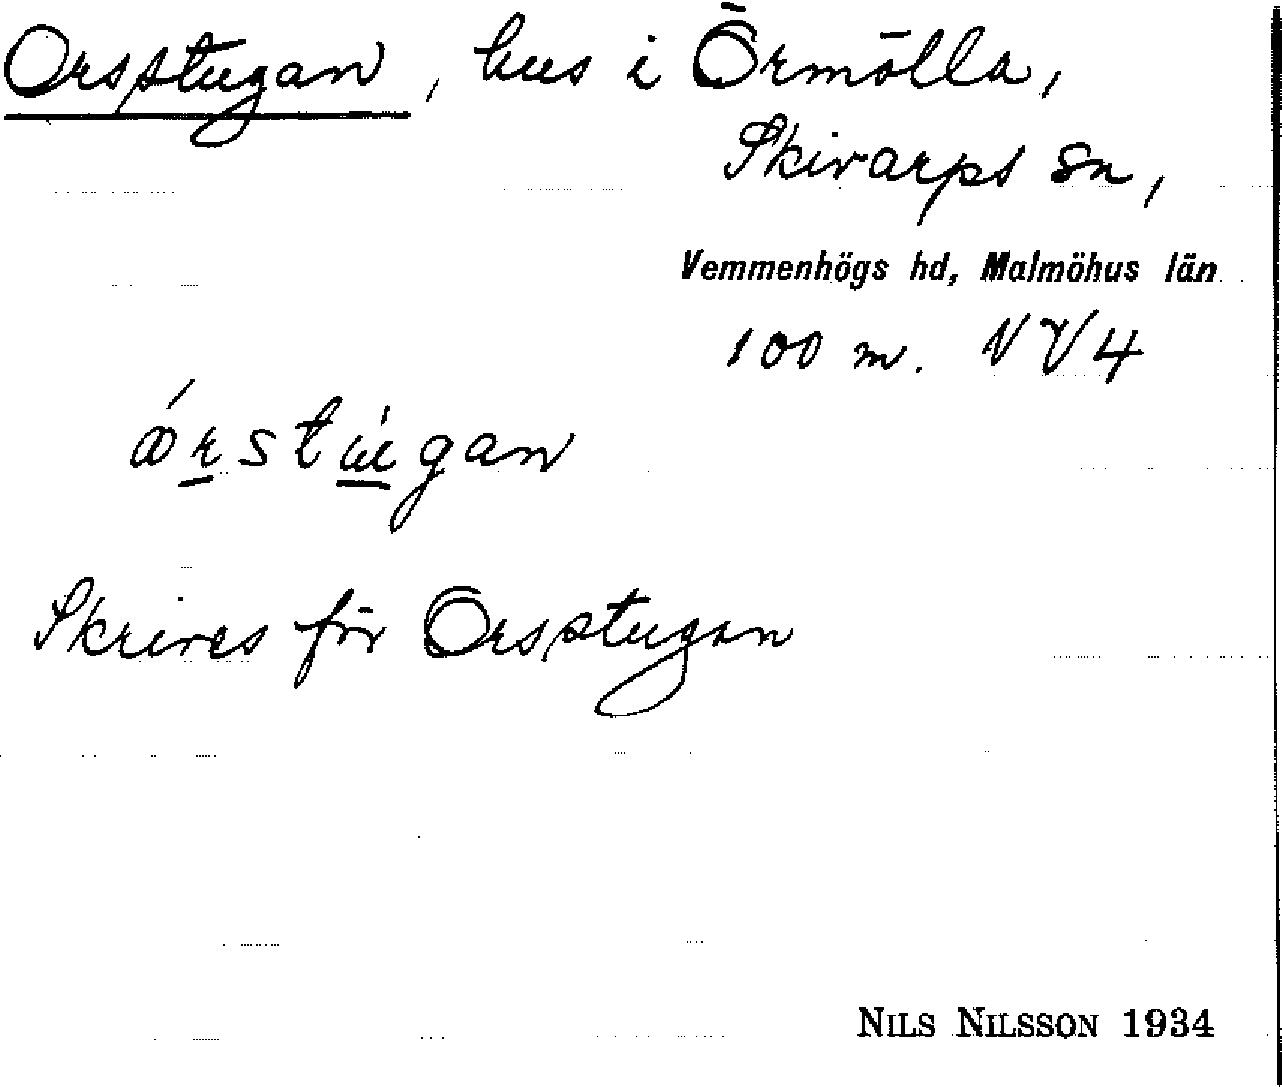 Orsstugan, hus i Örmölla,
Skivarps sn,
Vemmenhögs hd, Malmöhus län
100 m. VV4
ǿrstúgan
Skrives för Örsstugan
NILS NILSSON 1934